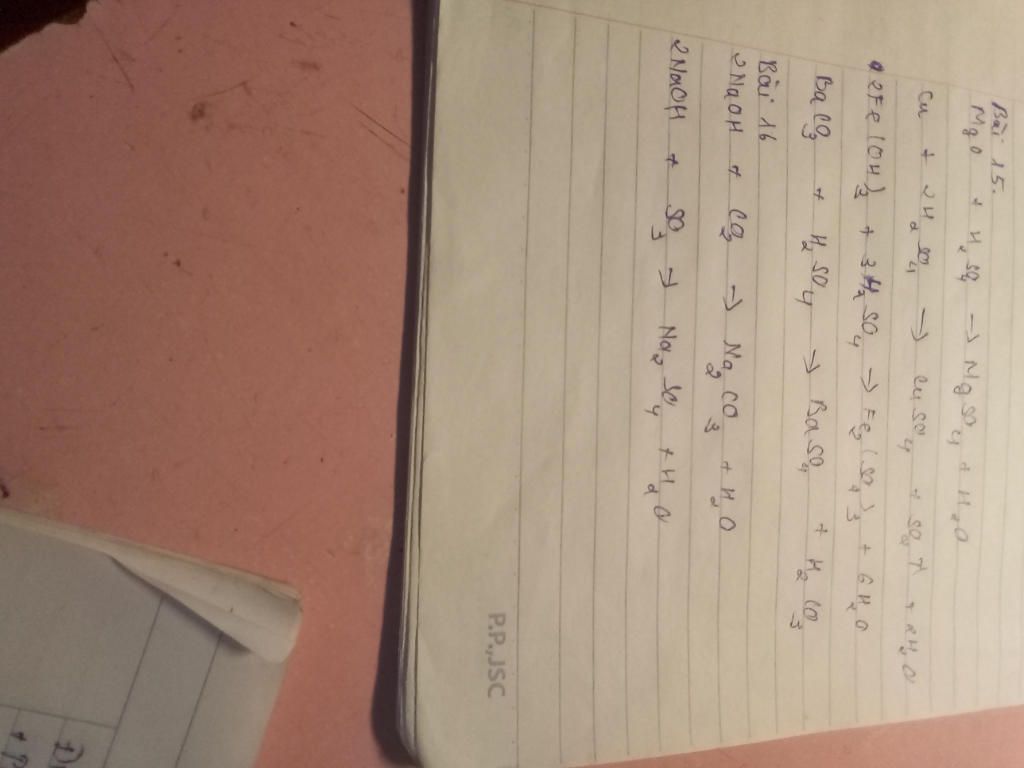 Bài 15.
MgO + H2SO4 → MgSO4 + H2O
Cu + 2H2SO4 → CuSO4 + SO2↑ + 2H2O
2Fe(OH)3 + 3H2SO4 → Fe2(SO4)3 + 6H2O
BaCO3 + H2SO4 → BaSO4 + H2CO3
Bài 16
2NaOH + CO2 → Na2CO3 + H2O
2NaOH + SO3 → Na2SO4 + H2O
P.P.,JSC